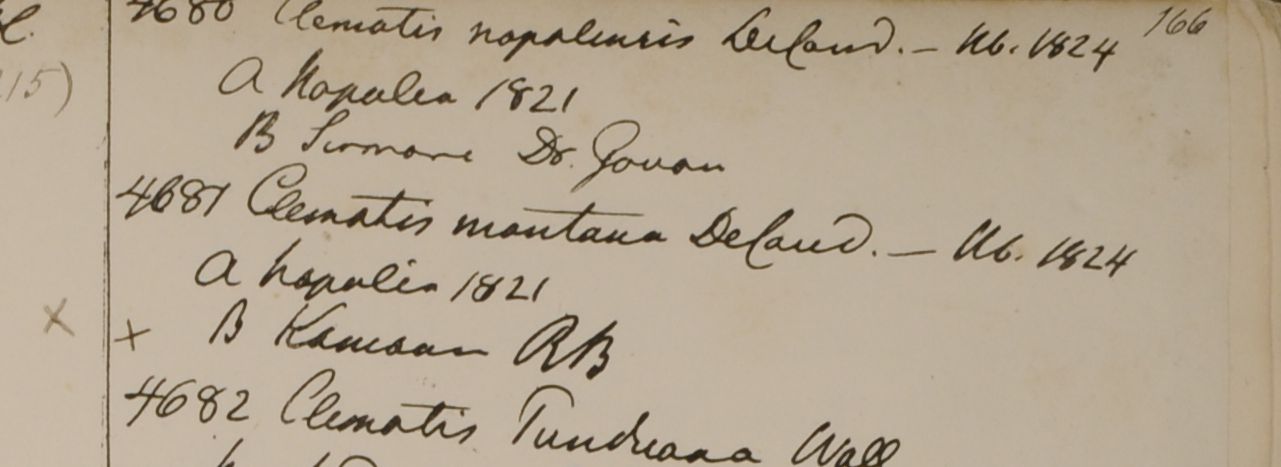 166
l.
4680 Clematis napalensis DeCand. — Hb. 1824
15)
A Napalia 1821
B Sirmore Dr. Govan
4681 Clematis montana DeCand. — Hb. 1824
A Napalia 1821
x x B Kamaon RB
4682 Clematis Wall